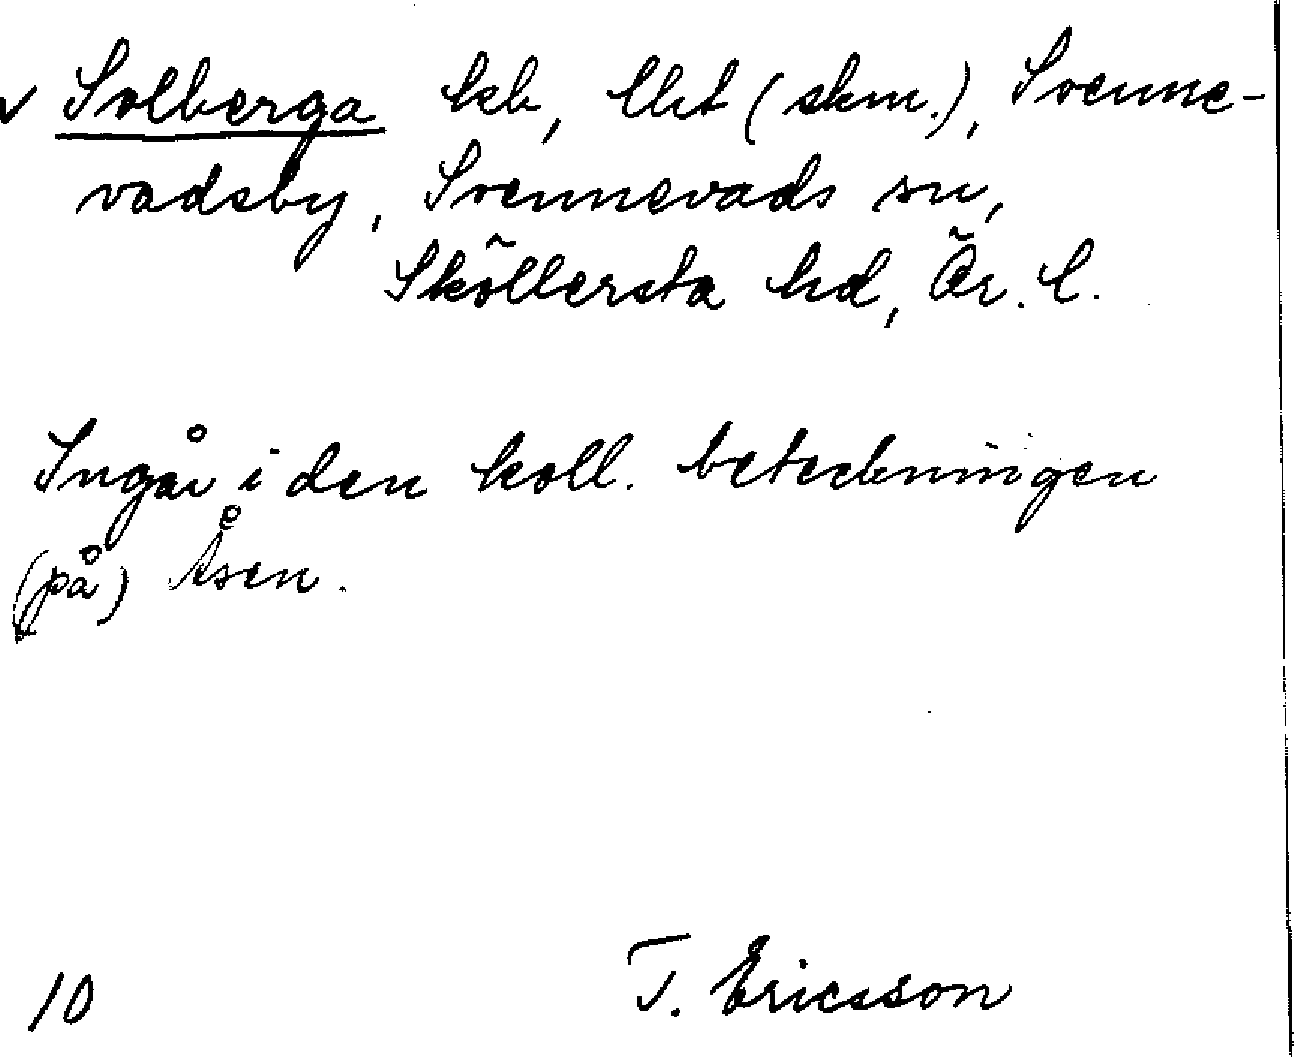 ✓ Solberga hsb, lht (skm.), Svenne-
vadsby, Svennevads sn,
Sköllersta hd, Ör. l.
Ingår i den koll. beteckningen
(på) Åsen.
10 T. Ericsson